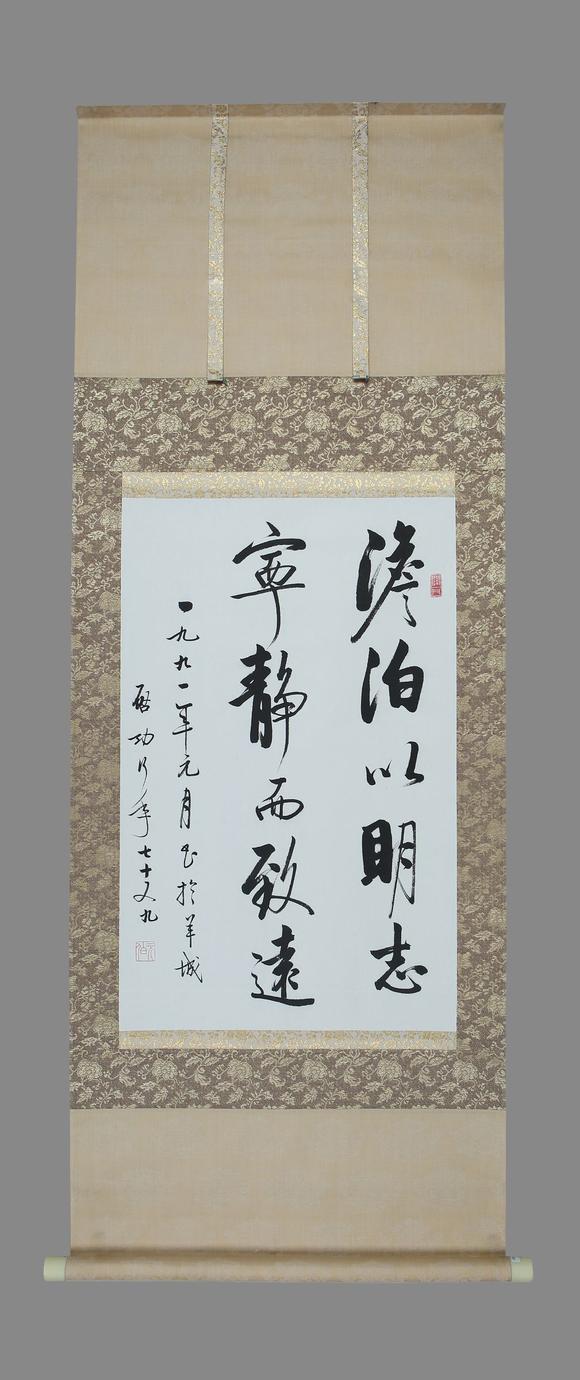 澹泊以明志
寧靜而致遠
一九九一年元月书於羊城
啓功行年七十又九